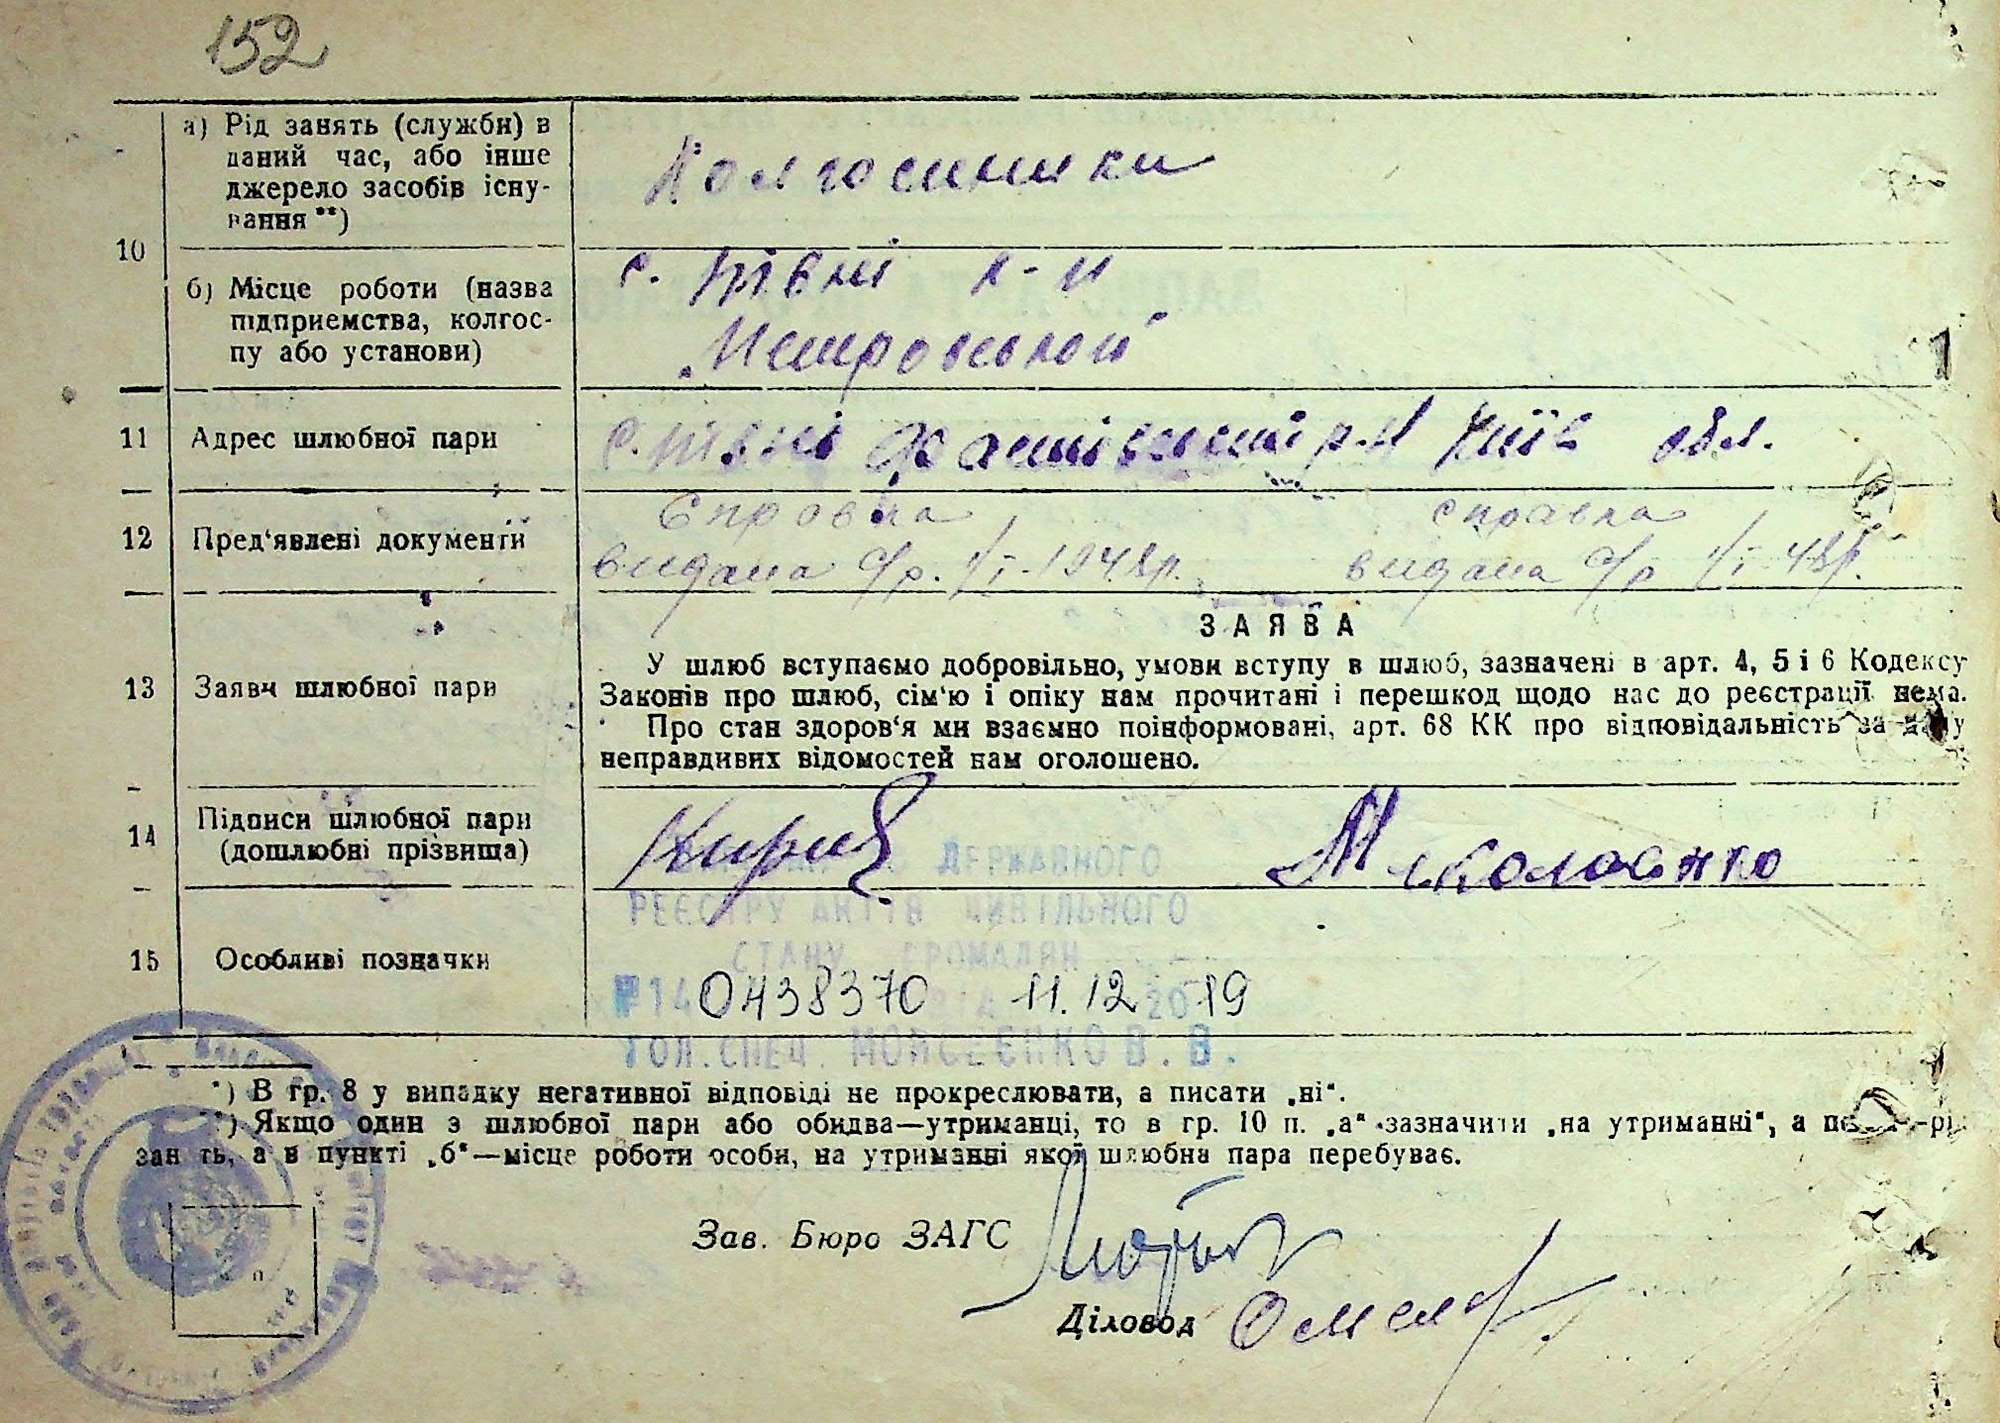 152
10
а) Рід занять (служби) в
даний час, або інше
джерело засобів існу-
вання **)
Колгоспники
б) Місце роботи (назва
підприємства, колгос-
пу або установи)
с. Півні к-п
„Петровський"
11 Адрес шлюбної пари
с. Півні Фастівський р-н Київ обл.
12 Пред'явлені документи
Справка справка
видана с/р. 1/I-1948р. видана с/р 1/I-48р.
13 Заява шлюбної пари
ЗАЯВА
У шлюб вступаємо добровільно, умови вступу в шлюб, зазначені в арт. 4, 5 і 6 Кодексу
Законів про шлюб, сім'ю і опіку нам прочитані і перешкод щодо нас до реєстрації нема.
Про стан здоров'я ми взаємно поінформовані, арт. 68 КК про відповідальність за дачу
неправдивих відомостей нам оголошено.
14 Підписи шлюбної пари
(дошлюбні прізвища)
Миколаєнко
ДЕРЖАВНОГО
РЕЄСТРУ АКТІВ ЦИВІЛЬНОГО
СТАНУ ГРОМАДЯН
15 Особливі позначки
№14 0438370 11.12 2019
ГОЛ. СПЕЦ. МОЙСЕЄНКО В. В.
*) В гр. 8 у випадку негативної відповіді не прокреслювати, а писати „ні".
**) Якщо один з шлюбної пари або обидва—утриманці, то в гр. 10 п. „а" зазначити „на утриманні", а
занять, а в пункті „б"—місце роботи особи, на утриманні якої шлюбна пара перебуває.
Зав. Бюро ЗАГС
Діловод